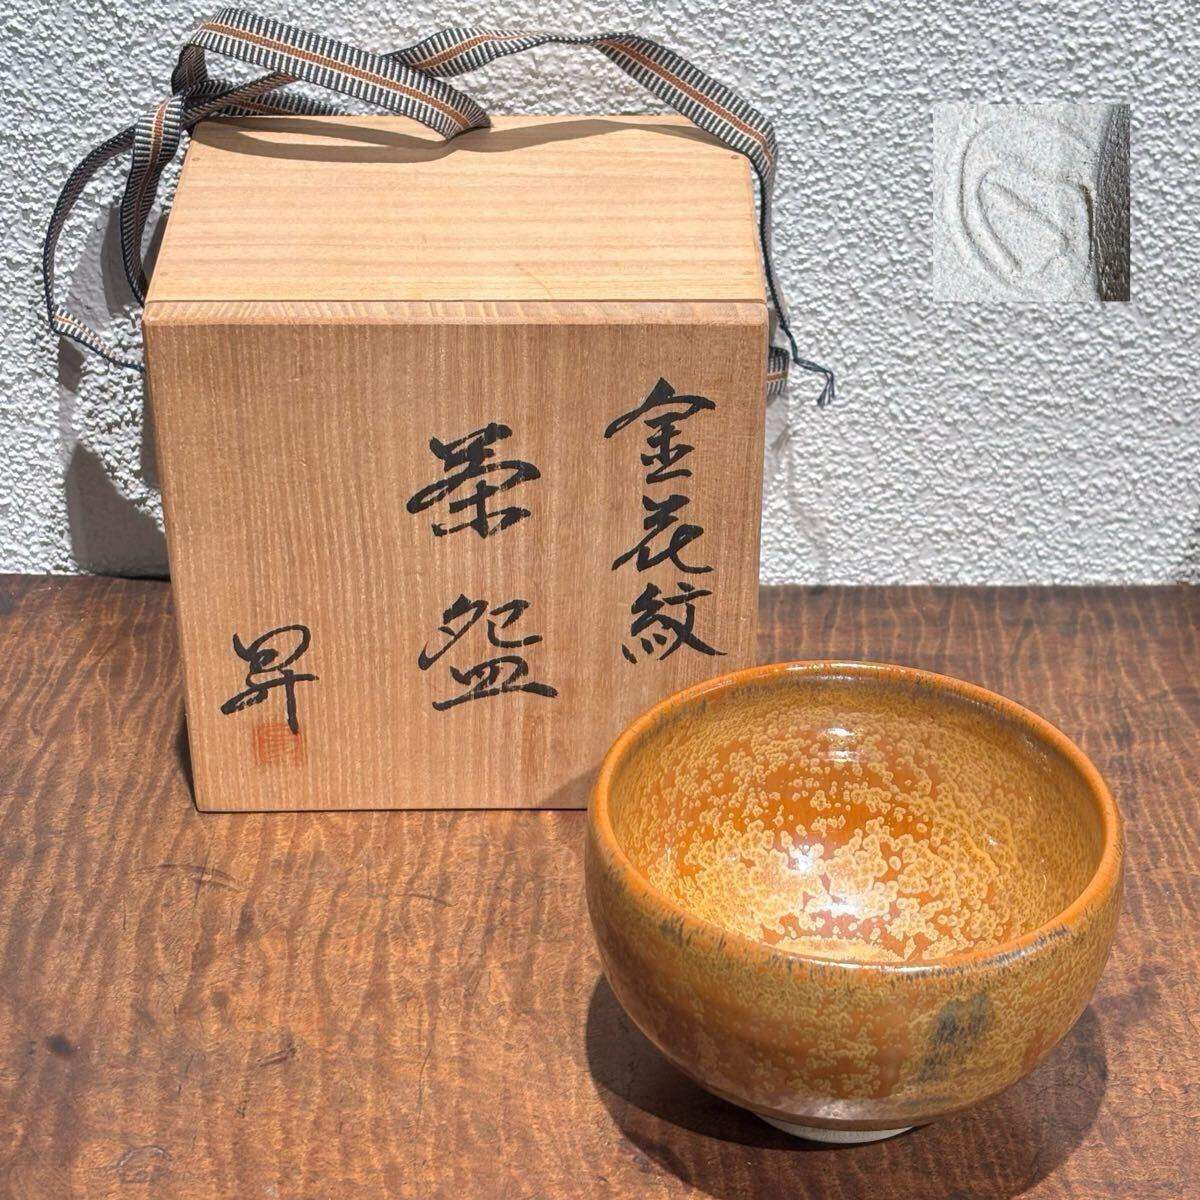 金花紋
茶盌
昇